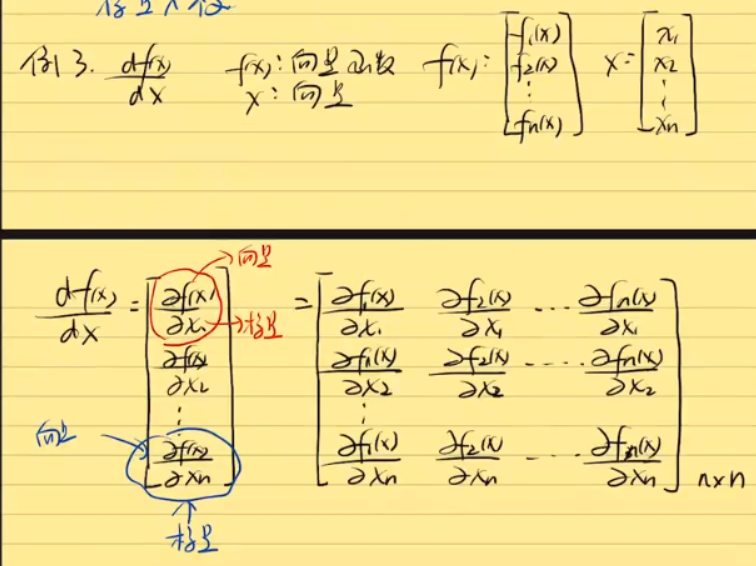 标量个数
例3. df(x)/dx f(x):向量函数 f(x): [f₁(x) f₂(x) ⋮ fn(x)] x= [x₁ x₂ ⋮ xn]
x:向量
df(x)/dx = [∂f(x)/∂x₁ ∂f(x)/∂x₂ ⋮ ∂f(x)/∂xn] = [∂f₁(x)/∂x₁ ∂f₂(x)/∂x₁ ... ∂fn(x)/∂x₁
∂f₁(x)/∂x₂ ∂f₂(x)/∂x₂ .... ∂fn(x)/∂x₂
⋮
∂f₁(x)/∂xn ∂f₂(x)/∂xn ... ∂fn(x)/∂xn] n×n
向量
标量
向量
标量